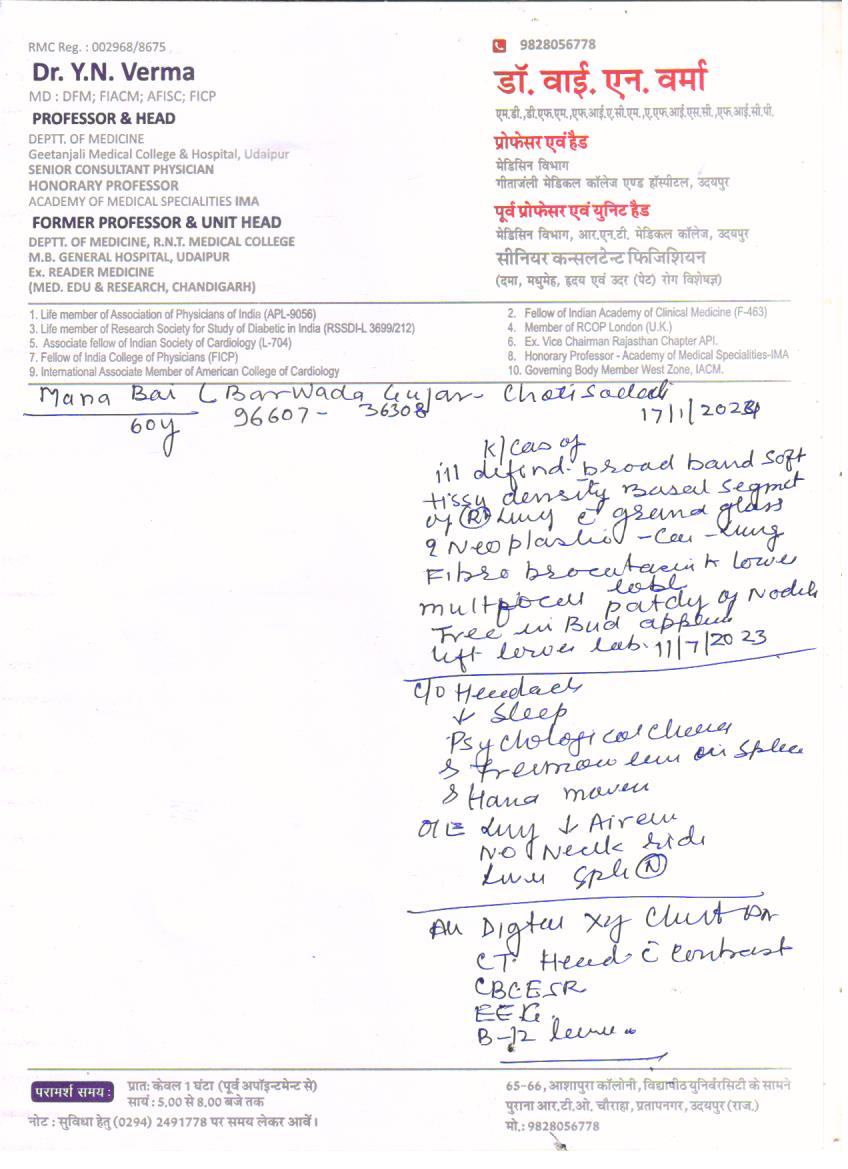 RMC Reg. : 002968/8675
Dr. Y.N. Verma
MD : DFM; FIACM; AFISC; FICP
PROFESSOR & HEAD
DEPTT. OF MEDICINE
Geetanjali Medical College & Hospital, Udaipur
SENIOR CONSULTANT PHYSICIAN
HONORARY PROFESSOR
ACADEMY OF MEDICAL SPECIALITIES IMA
FORMER PROFESSOR & UNIT HEAD
DEPTT. OF MEDICINE, R.N.T. MEDICAL COLLEGE
M.B. GENERAL HOSPITAL, UDAIPUR
Ex. READER MEDICINE
(MED. EDU & RESEARCH, CHANDIGARH)
9828056778
डॉ. वाई. एन. वर्मा
एम.डी.,डी.एफ.एम.,एफ.आई.ए.सी.एम.,ए.एफ.आई.एस.सी.,एफ.आई.सी.पी.
प्रोफेसर एवं हैड
मेडिसिन विभाग
गीतांजली मेडिकल कॉलेज एण्ड हॉस्पीटल, उदयपुर
पूर्व प्रोफेसर एवं युनिट हैड
मेडिसिन विभाग, आर.एन.टी. मेडिकल कॉलेज, उदयपुर
सीनियर कन्सलटेन्ट फिजिशियन
(दमा, मधुमेह, हृदय एवं उदर (पेट) रोग विशेषज्ञ)
1. Life member of Association of Physicians of India (APL-9056)
2. Fellow of Indian Academy of Clinical Medicine (F-463)
3. Life member of Research Society for Study of Diabetic in India (RSSDI-L 3699/212)
4. Member of RCOP London (U.K.)
5. Associate fellow of Indian Society of Cardiology (L-704)
6. Ex. Vice Chairman Rajasthan Chapter API.
7. Fellow of India College of Physicians (FICP)
8. Honorary Professor - Academy of Medical Specialities-IMA
9. International Associate Member of American College of Cardiology
10. Governing Body Member West Zone, IACM.
Mana Bai ( BarWada Gujar - Choti Sadadi
60y 96607-36308 17/1/2024
K/Cas of
ill defind broad band soft
tissy density Based Segmet
of (R) Lung c̄ grand glass
? Neoplastic - Lung
Fibro lower
lobe
patdy of Nodule
Tree in Bud
left lower lab. 11/7/2023
C/O Headach
↓ Sleep
Psychological
Hand
O/E Lung ↓ Air
NO Neck
(N)
Digital Xy Chest
CT. Head c̄ Contrast
CBC ESR
EEG
B-12
परामर्श समय :
प्रातः केवल 1 घंटा (पूर्व अपॉइन्टमेन्ट से)
सायं : 5.00 से 8.00 बजे तक
नोट : सुविधा हेतु (0294) 2491778 पर समय लेकर आवें।
65-66, आशापुरा कॉलोनी, विद्यापीठ युनिवरसिटी के सामने
पुराना आर.टी.ओ. चौराहा, प्रतापनगर, उदयपुर (राज.)
मो.: 9828056778